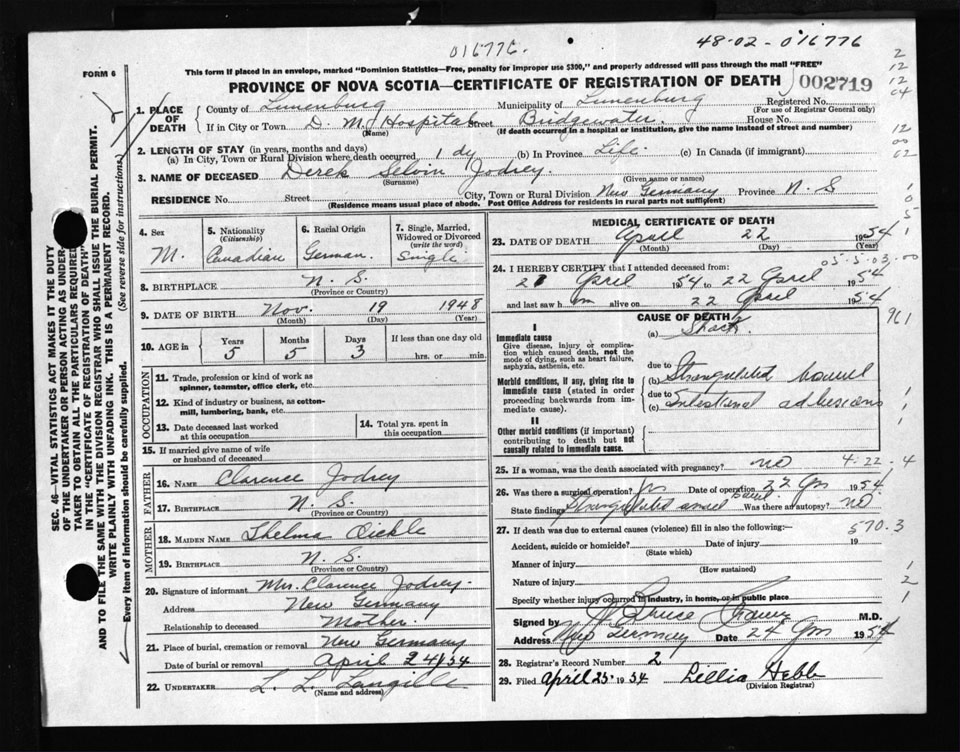 016776.
48-02-016776
FORM 6
This form if placed in an envelope, marked "Dominion Statistics—Free, penalty for improper use $300," and properly addressed will pass through the mail "FREE"
PROVINCE OF NOVA SCOTIA—CERTIFICATE OF REGISTRATION OF DEATH
002719
1. PLACE OF DEATH
County of Lunenburg Municipality of Lunenburg Registered No.
(For use of Registrar General only)
If in City or Town D. M. Hospital Street Bridgewater. House No.
(Name) (If death occurred in a hospital or institution, give the name instead of street and number)
2. LENGTH OF STAY (in years, months and days)
(a) In City, Town or Rural Division where death occurred 1 dy (b) In Province Life. (c) In Canada (if immigrant)
3. NAME OF DECEASED Derek Selvin Jodrey.
(Surname) (Given name or names)
RESIDENCE No. Street City, Town or Rural Division New Germany Province N. S
(Residence means usual place of abode. Post Office Address for residents in rural parts not sufficient)
4. Sex
M.
5. Nationality
(Citizenship)
Canadian
6. Racial Origin
German.
7. Single, Married, Widowed or Divorced
(write the word)
Single
8. BIRTHPLACE N. S.
(Province or Country)
9. DATE OF BIRTH Nov. 19 1948
(Month) (Day) (Year)
10. AGE in Years Months Days If less than one day old
5 5 3 hrs. or min.
OCCUPATION
11. Trade, profession or kind of work as
spinner, teamster, office clerk, etc.
12. Kind of industry or business, as cotton-
mill, lumbering, bank, etc.
13. Date deceased last worked
at this occupation
14. Total yrs. spent in
this occupation
15. If married give name of wife
or husband of deceased
FATHER
16. Name Clarence Jodrey
17. Birthplace N. S.
(Province or Country)
MOTHER
18. MAIDEN NAME Thelma Oickle
19. BIRTHPLACE N. S.
(Province or Country)
20. Signature of informant Mrs. Clarence Jodrey.
Address New Germany
Relationship to deceased Mother.
21. Place of burial, cremation or removal New Germany
Date of burial or removal April 24/54
22. UNDERTAKER L. L. Langille
(Name and address)
MEDICAL CERTIFICATE OF DEATH
23. DATE OF DEATH April 22 1954
(Month) (Day) (Year)
05-5-03.00
24. I HEREBY CERTIFY that I attended deceased from:
21 April 1954 to 22 April 1954
and last saw him alive on 22 April 1954
CAUSE OF DEATH
I
Immediate cause
Give disease, injury or complica-
tion which caused death, not the
mode of dying, such as heart failure,
asphyxia, asthenia, etc.
(a) Shock
due to
Morbid conditions, if any, giving rise to
immediate cause (stated in order
proceeding backwards from im-
mediate cause).
(b) Strangulated bowel
due to
(c) Intestinal adhesions
II
Other morbid conditions (if important)
contributing to death but not
causally related to immediate cause.
961
25. If a woman, was the death associated with pregnancy? no
4-22.4
26. Was there a surgical operation? yes Date of operation 22 1954
State findings Strangulated bowel Was there an autopsy? no.
27. If death was due to external causes (violence) fill in also the following:—
570.3
Accident, suicide or homicide? Date of injury 19
(State which)
Manner of injury
(How sustained)
Nature of injury
Specify whether injury occurred in industry, in home, or in public place
Signed by Bruce M.D.
Address New Germany Date 24 1954
28. Registrar's Record Number 2
29. Filed April 25 1954 Lillia Hebb
(Division Registrar)
SEC. 46—VITAL STATISTICS ACT MAKES IT THE DUTY
OF THE UNDERTAKER OR PERSON ACTING AS UNDER-
TAKER TO OBTAIN ALL THE PARTICULARS REQUIRED
IN THE "CERTIFICATE OF REGISTRATION OF DEATH"
AND TO FILE THE SAME WITH THE DIVISION REGISTRAR WHO SHALL ISSUE THE BURIAL PERMIT.
WRITE PLAINLY WITH UNFADING INK. THIS IS A PERMANENT RECORD.
Every item of information should be carefully supplied. (See reverse side for instructions)